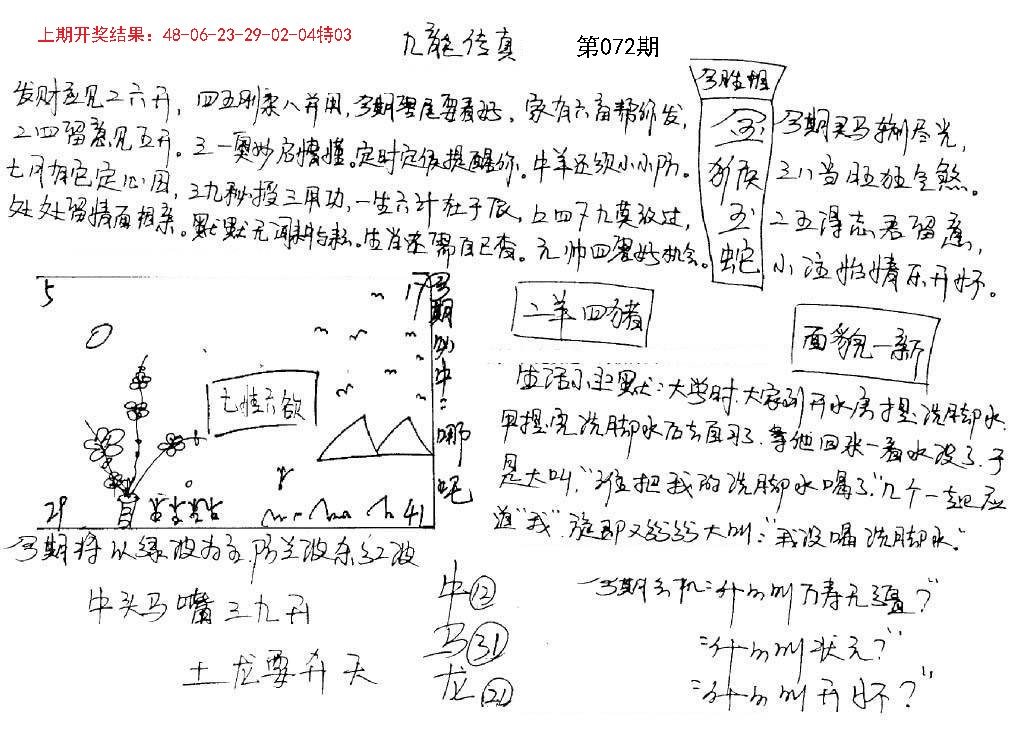 上期开奖结果：48-06-23-29-02-04特03
九龙传真
第072期
发财应见二六开，四五刚柔八并用，今期蛋尾要看好，家有六畜帮你发，
二四留意见五开。三一奥妙启情懂。定时定位提醒你。牛羊还须小小防。
七月有它定心用，三九秒投三用功，一生六计在于辰，二四下九莫放过，
处处留情面相亲。默默无闻耕与耘。生肖还需自己查。元帅四蛋好机会。
今期灵马辆尽光，
三八当旺狂全煞。
二五得志君留意，
小注怡情乐开怀。
5
17
七情六欲
29
41
今期必中：哪吒
二羊四猪
面貌一新
生活小幽默：大学时大家到开水房提洗脚水，
甲提完洗脚水后去自习了，等他回来一看水没了，于
是大叫，“谁把我的洗脚水喝了”几个一起应
道“我”旋即又纷纷大叫：“我没喝洗脚水”
今期将以绿波为主，防兰波杀红波
牛头马嘴三九开
土龙要升天
牛⑫
马㉛
龙㉑
今期玄机：什么叫万寿无疆？”
：什么叫状元？”
：什么叫开怀？”